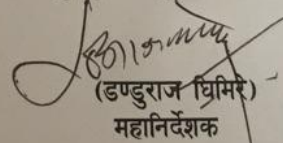 (डण्डुराज घिमिरे)
महानिर्देशक